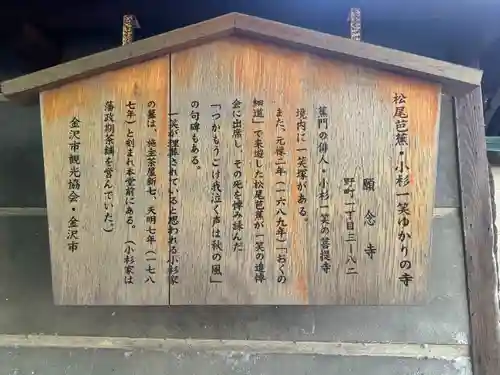 松尾芭蕉・小杉一笑ゆかりの寺
願念寺
野町一丁目三‐八二
蕉門の俳人・小杉一笑の菩提寺
境内に一笑塚がある。
また、元禄二年（一六八九年）「おくの
細道」で来遊した松尾芭蕉が一笑の追悼
会に出席し、その死を悼み詠んだ
「つかもうごけ我泣く声は秋の風」
の句碑もある。
一笑が埋葬されていると思われる小杉家
の墓は、「茶屋新七、天明七年（一七八
七年）」と刻まれ本堂前にある。（小杉家は
藩政期茶舗を営んでいた）
金沢市観光協会・金沢市